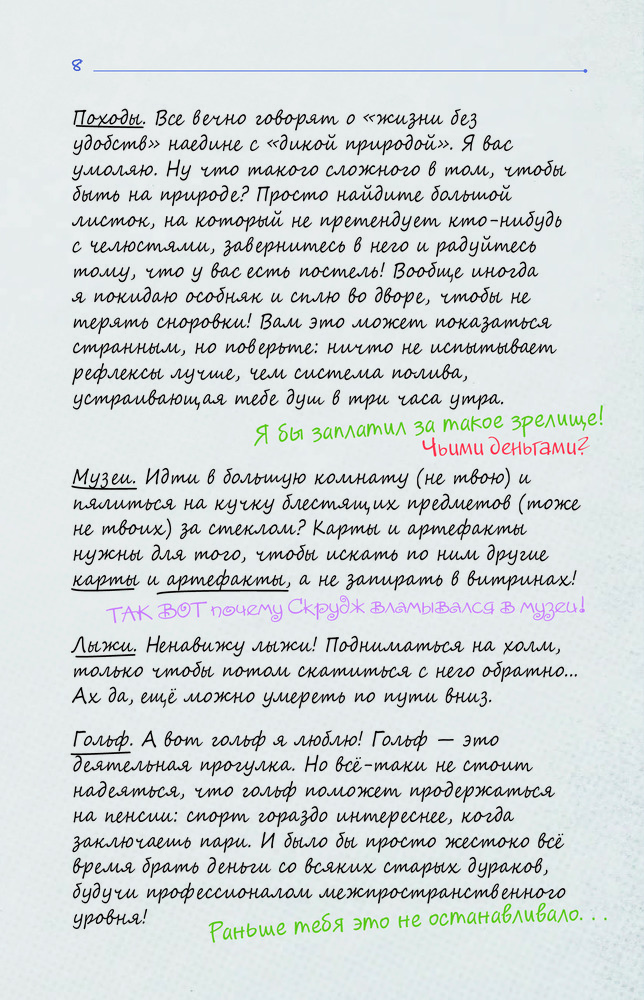 8
Походы. Все вечно говорят о «жизни без
удобств» наедине с «дикой природой». Я вас
умоляю. Ну что такого сложного в том, чтобы
быть на природе? Просто найдите большой
листок, на который не претендует кто-нибудь
с челюстями, завернитесь в него и радуйтесь
тому, что у вас есть постель! Вообще иногда
я покидаю особняк и сплю во дворе, чтобы не
терять сноровки! Вам это может показаться
странным, но поверьте: ничто не испытывает
рефлексы лучше, чем система полива,
устраивающая тебе душ в три часа утра.
Я бы заплатил за такое зрелище!
Чьими деньгами?
Музеи. Идти в большую комнату (не твою) и
пялиться на кучку блестящих предметов (тоже
не твоих) за стеклом? Карты и артефакты
нужны для того, чтобы искать по ним другие
карты и артефакты, а не запирать в витринах!
ТАК ВОТ почему Скрудж вламывался в музеи!
Лыжи. Ненавижу лыжи! Подниматься на холм,
только чтобы потом скатиться с него обратно...
Ах да, ещё можно умереть по пути вниз.
Гольф. А вот гольф я люблю! Гольф — это
деятельная прогулка. Но всё-таки не стоит
надеяться, что гольф поможет продержаться
на пенсии: спорт гораздо интереснее, когда
заключаешь пари. И было бы просто жестоко всё
время брать деньги со всяких старых дураков,
будучи профессионалом межпространственного
уровня!
Раньше тебя это не останавливало...